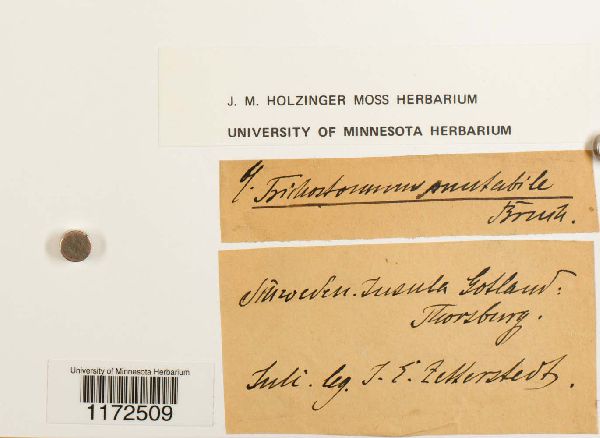 J. M. HOLZINGER MOSS HERBARIUM
UNIVERSITY OF MINNESOTA HERBARIUM
Trichostomum mutabile
Bruch.
Schweden. Insula Gotland.
Thorsburg.
Juli. leg. J. E. Zetterstedt.
University of Minnesota Herbarium
1172509